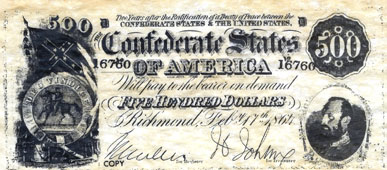 500
Two Years after the Ratification of a Treaty of Peace between the
CONFEDERATE STATES & THE UNITED STATES,
Confederate States
500
16760 16760
OF AMERICA
Will pay to the bearer on demand
FIVE HUNDRED DOLLARS
Richmond, Feb 17th, 1864
for Treasurer
COPY